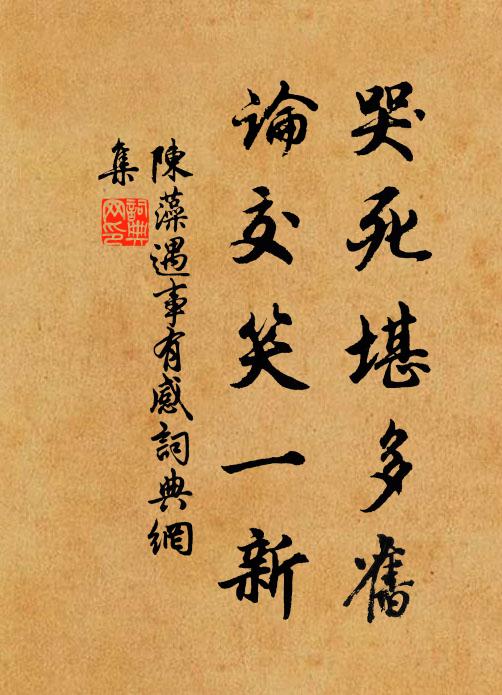 哭死堪多舊
論交笑一新
陳藻遇事有感詞典網
集
詞典網印